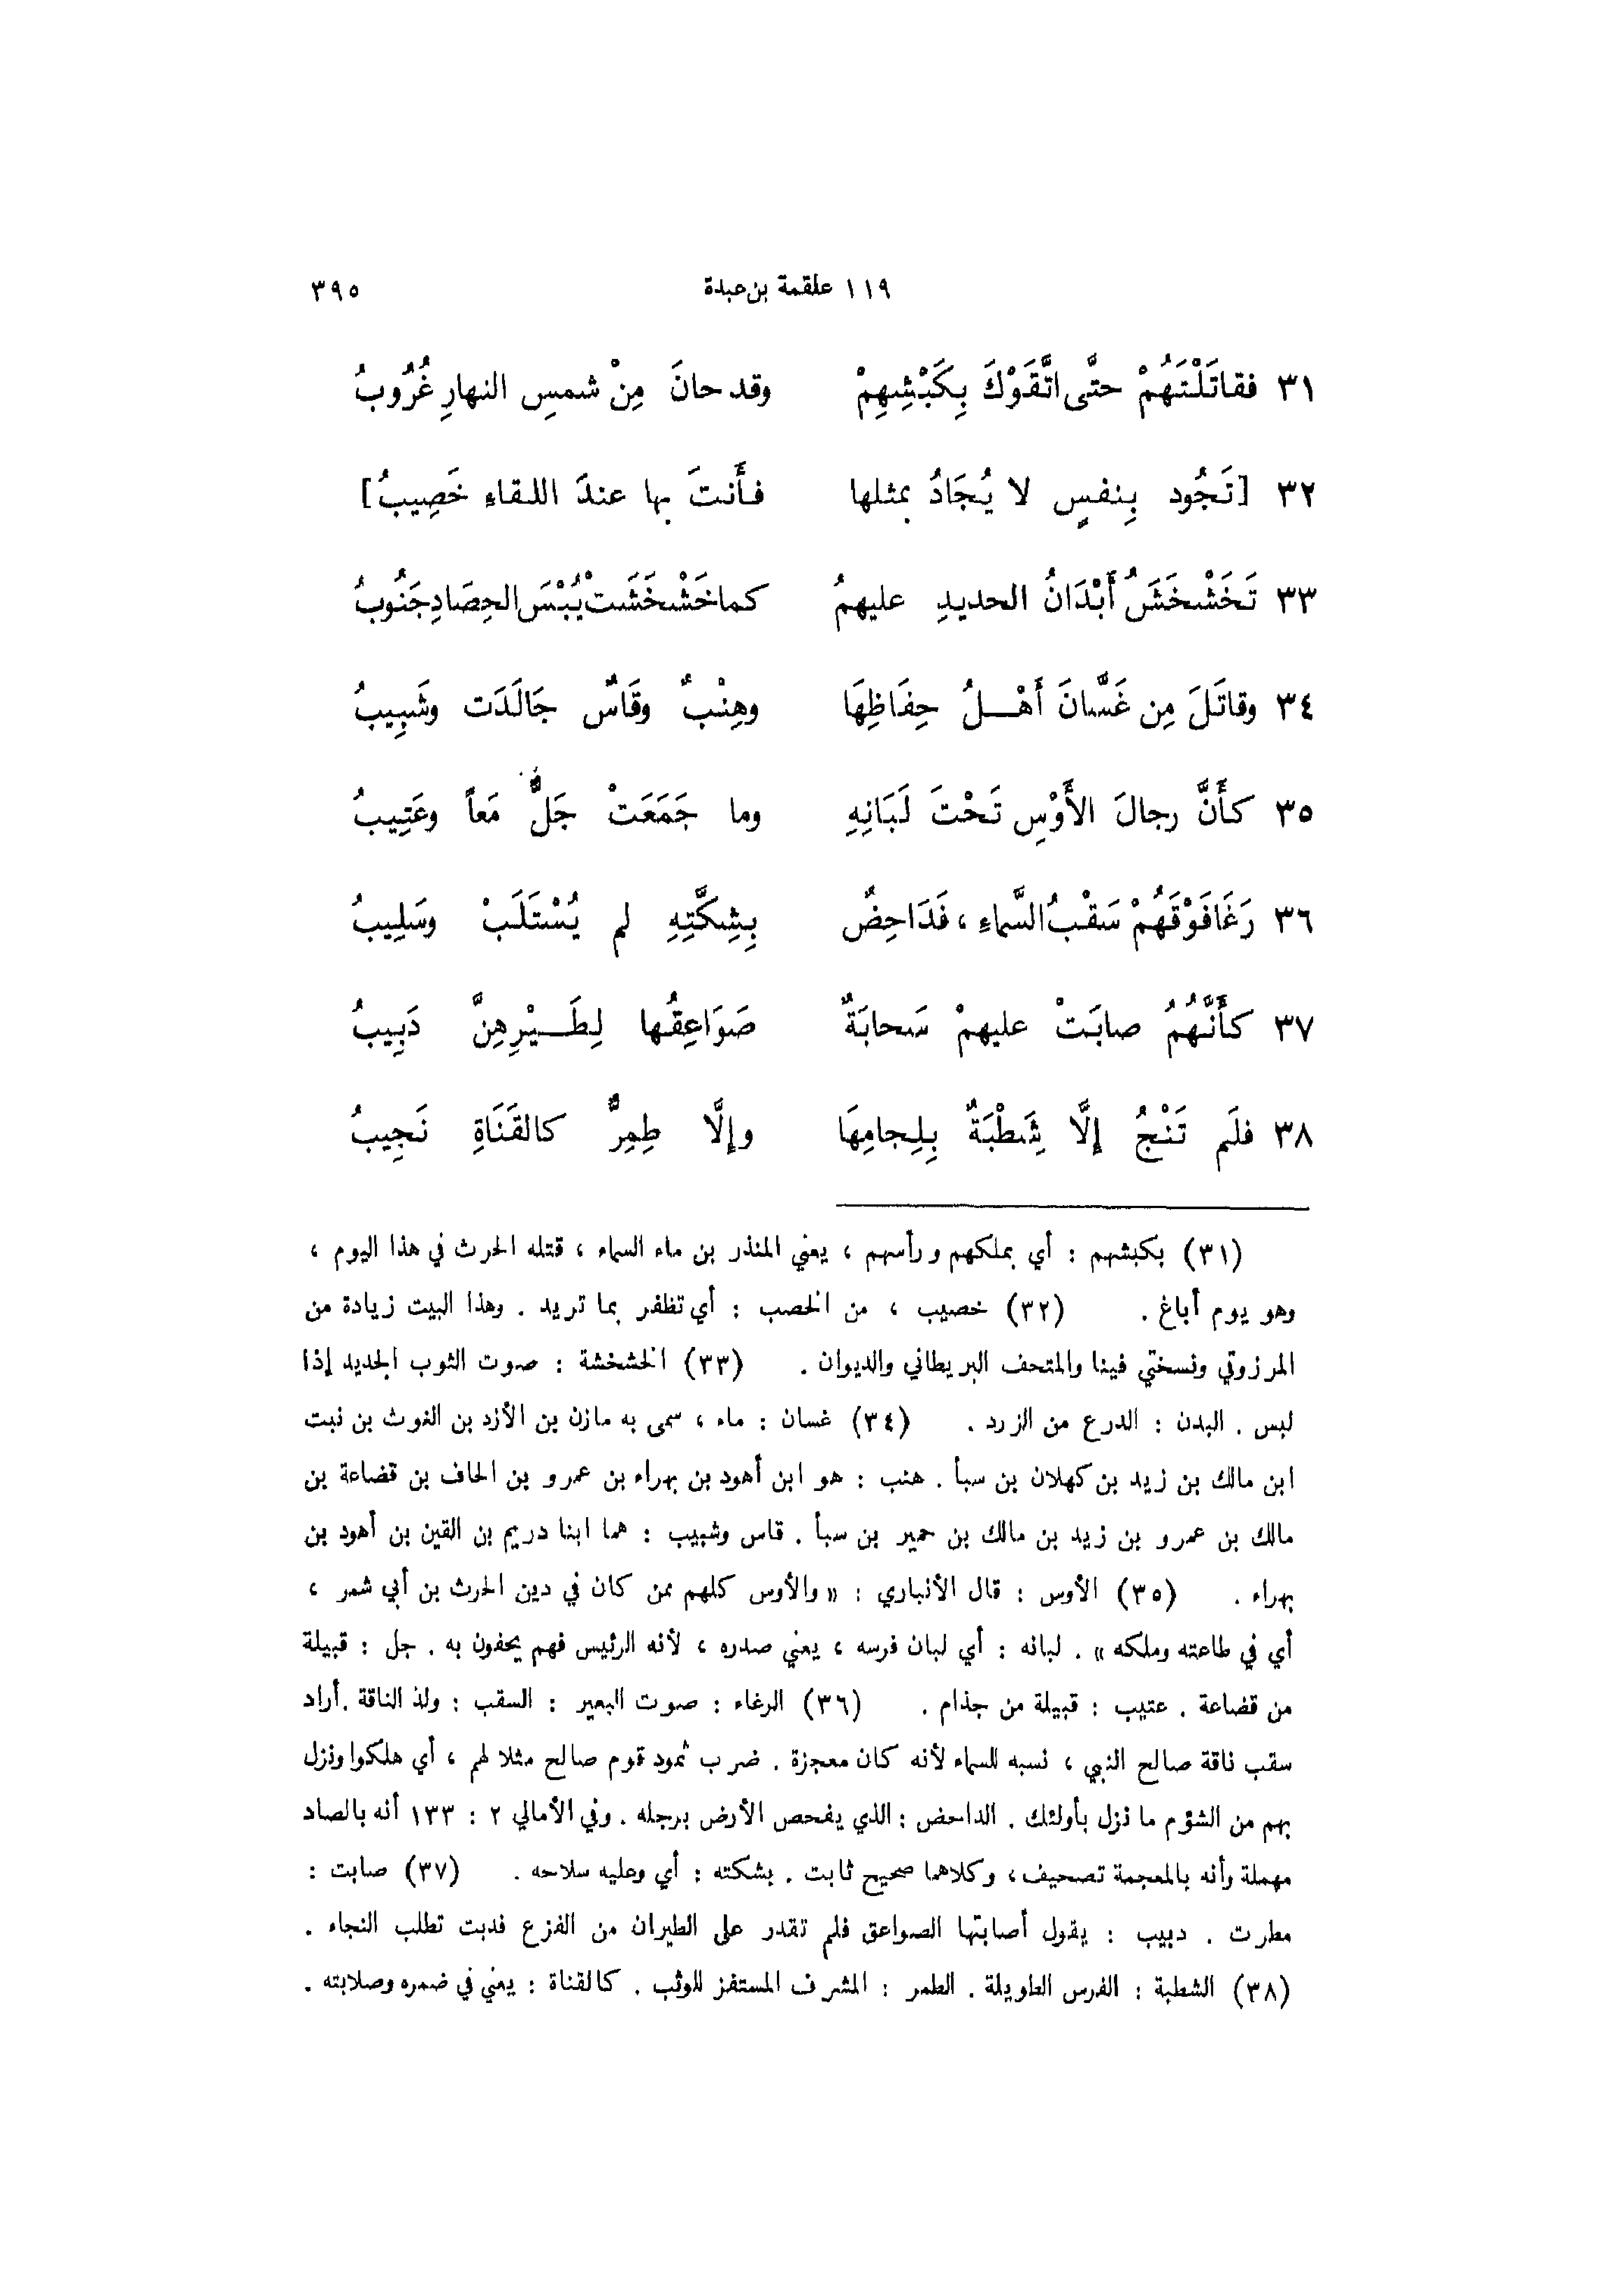 ١١٩ علقمة بن عبدة ٣٩٥
٣١ فقاتَلْتَهُمْ حتَّى اتَّقَوْكَ بِكَبْشِهِمْ وقد حانَ مِنْ شمسِ النهارِ غُرُوبُ
٣٢ [تَجُود بِنفسٍ لا يُجَادُ بمثلها فأَنتَ بها عندَ اللقاءِ خَصِيبُ]
٣٣ تَخَشْخَشَُ أَبْدَانُ الحديدِ عليهمُ كما خَشْخَشَتْ يُبْسَ الحِصَادِ جَنُوبُ
٣٤ وقاتَلَ مِن غَسَّانَ أَهْلُ حِفَاظِهَا وهِنْبٌ وقَاسٌ جَالَدَت وشَبِيبُ
٣٥ كأَنَّ رجالَ الأَوْسِ تَحْتَ لَبَانِهِ وما جَمَعَتْ جَلٌّ مَعاً وعَتِيبُ
٣٦ رَغَا فَوْقَهُمْ سَقْبُ السَّماءِ ، فَدَاحِضٌ بِشِكَّتِهِ لم يُسْتَلَبْ وسَلِيبُ
٣٧ كأَنَّهُمُ صابَتْ عليهمْ سَحابَةٌ صَوَاعِقُها لِطَيْرِهِنَّ دَبِيبُ
٣٨ فلَم تَنْجُ إلَّا شَطْبَةٌ بِلِجامِهَا وإلَّا طِمِرٌّ كالقَنَاةِ نَجِيبُ
(٣١) بكبشهم : أي بملكهم ورأسهم ، يعني المنذر بن ماء السماء ، قتله الحرث في هذا اليوم ،
وهو يوم أباغ . (٣٢) خصيب ، من الخصب : أي تظفر بما تريد . وهذا البيت زيادة من
المرزوقي ونسختي فينا والمتحف البريطاني والديوان . (٣٣) الخشخشة : صوت الثوب الجديد إذا
لبس . البدن : الدرع من الزرد . (٣٤) غسان : ماء ، سمى به مازن بن الأزد بن الغوث بن نبت
ابن مالك بن زيد بن كهلان بن سبأ . هنب : هو ابن أهود بن بهراء بن عمرو بن الحاف بن قضاعة بن
مالك بن عمرو بن زيد بن مالك بن حمير بن سبأ . قاس وشبيب : هما ابنا دريم بن القين بن أهود بن
بهراء . (٣٥) الأوس : قال الأنباري : « والأوس كلهم ممن كان في دين الحرث بن أبي شمر ،
أي في طاعته وملكه » . لبانه : أي لبان فرسه ، يعني صدره ، لأنه الرئيس فهم يحفون به . جل : قبيلة
من قضاعة . عتيب : قبيلة من جذام . (٣٦) الرغاء : صوت البعير : السقب : ولد الناقة . أراد
سقب ناقة صالح النبي ، نسبه للسماء لأنه كان معجزة . ضرب ثمود قوم صالح مثلا لهم ، أي هلكوا ونزل
بهم من الشؤم ما نزل بأولئك . الداحض : الذي يفحص الأرض برجله . وفي الأمالي ٢ : ١٣٣ أنه بالصاد
مهملة وأنه بالمعجمة تصحيف ، وكلاهما صحيح ثابت . بشكته : أي وعليه سلاحه . (٣٧) صابت :
مطرت . دبيب : يقول أصابتها الصواعق فلم تقدر على الطيران من الفزع فدبت تطلب النجاء .
(٣٨) الشطبة : الفرس الطويلة . الطمر : المشرف المستفز للوثب . كالقناة : يعني في ضمره وصلابته .